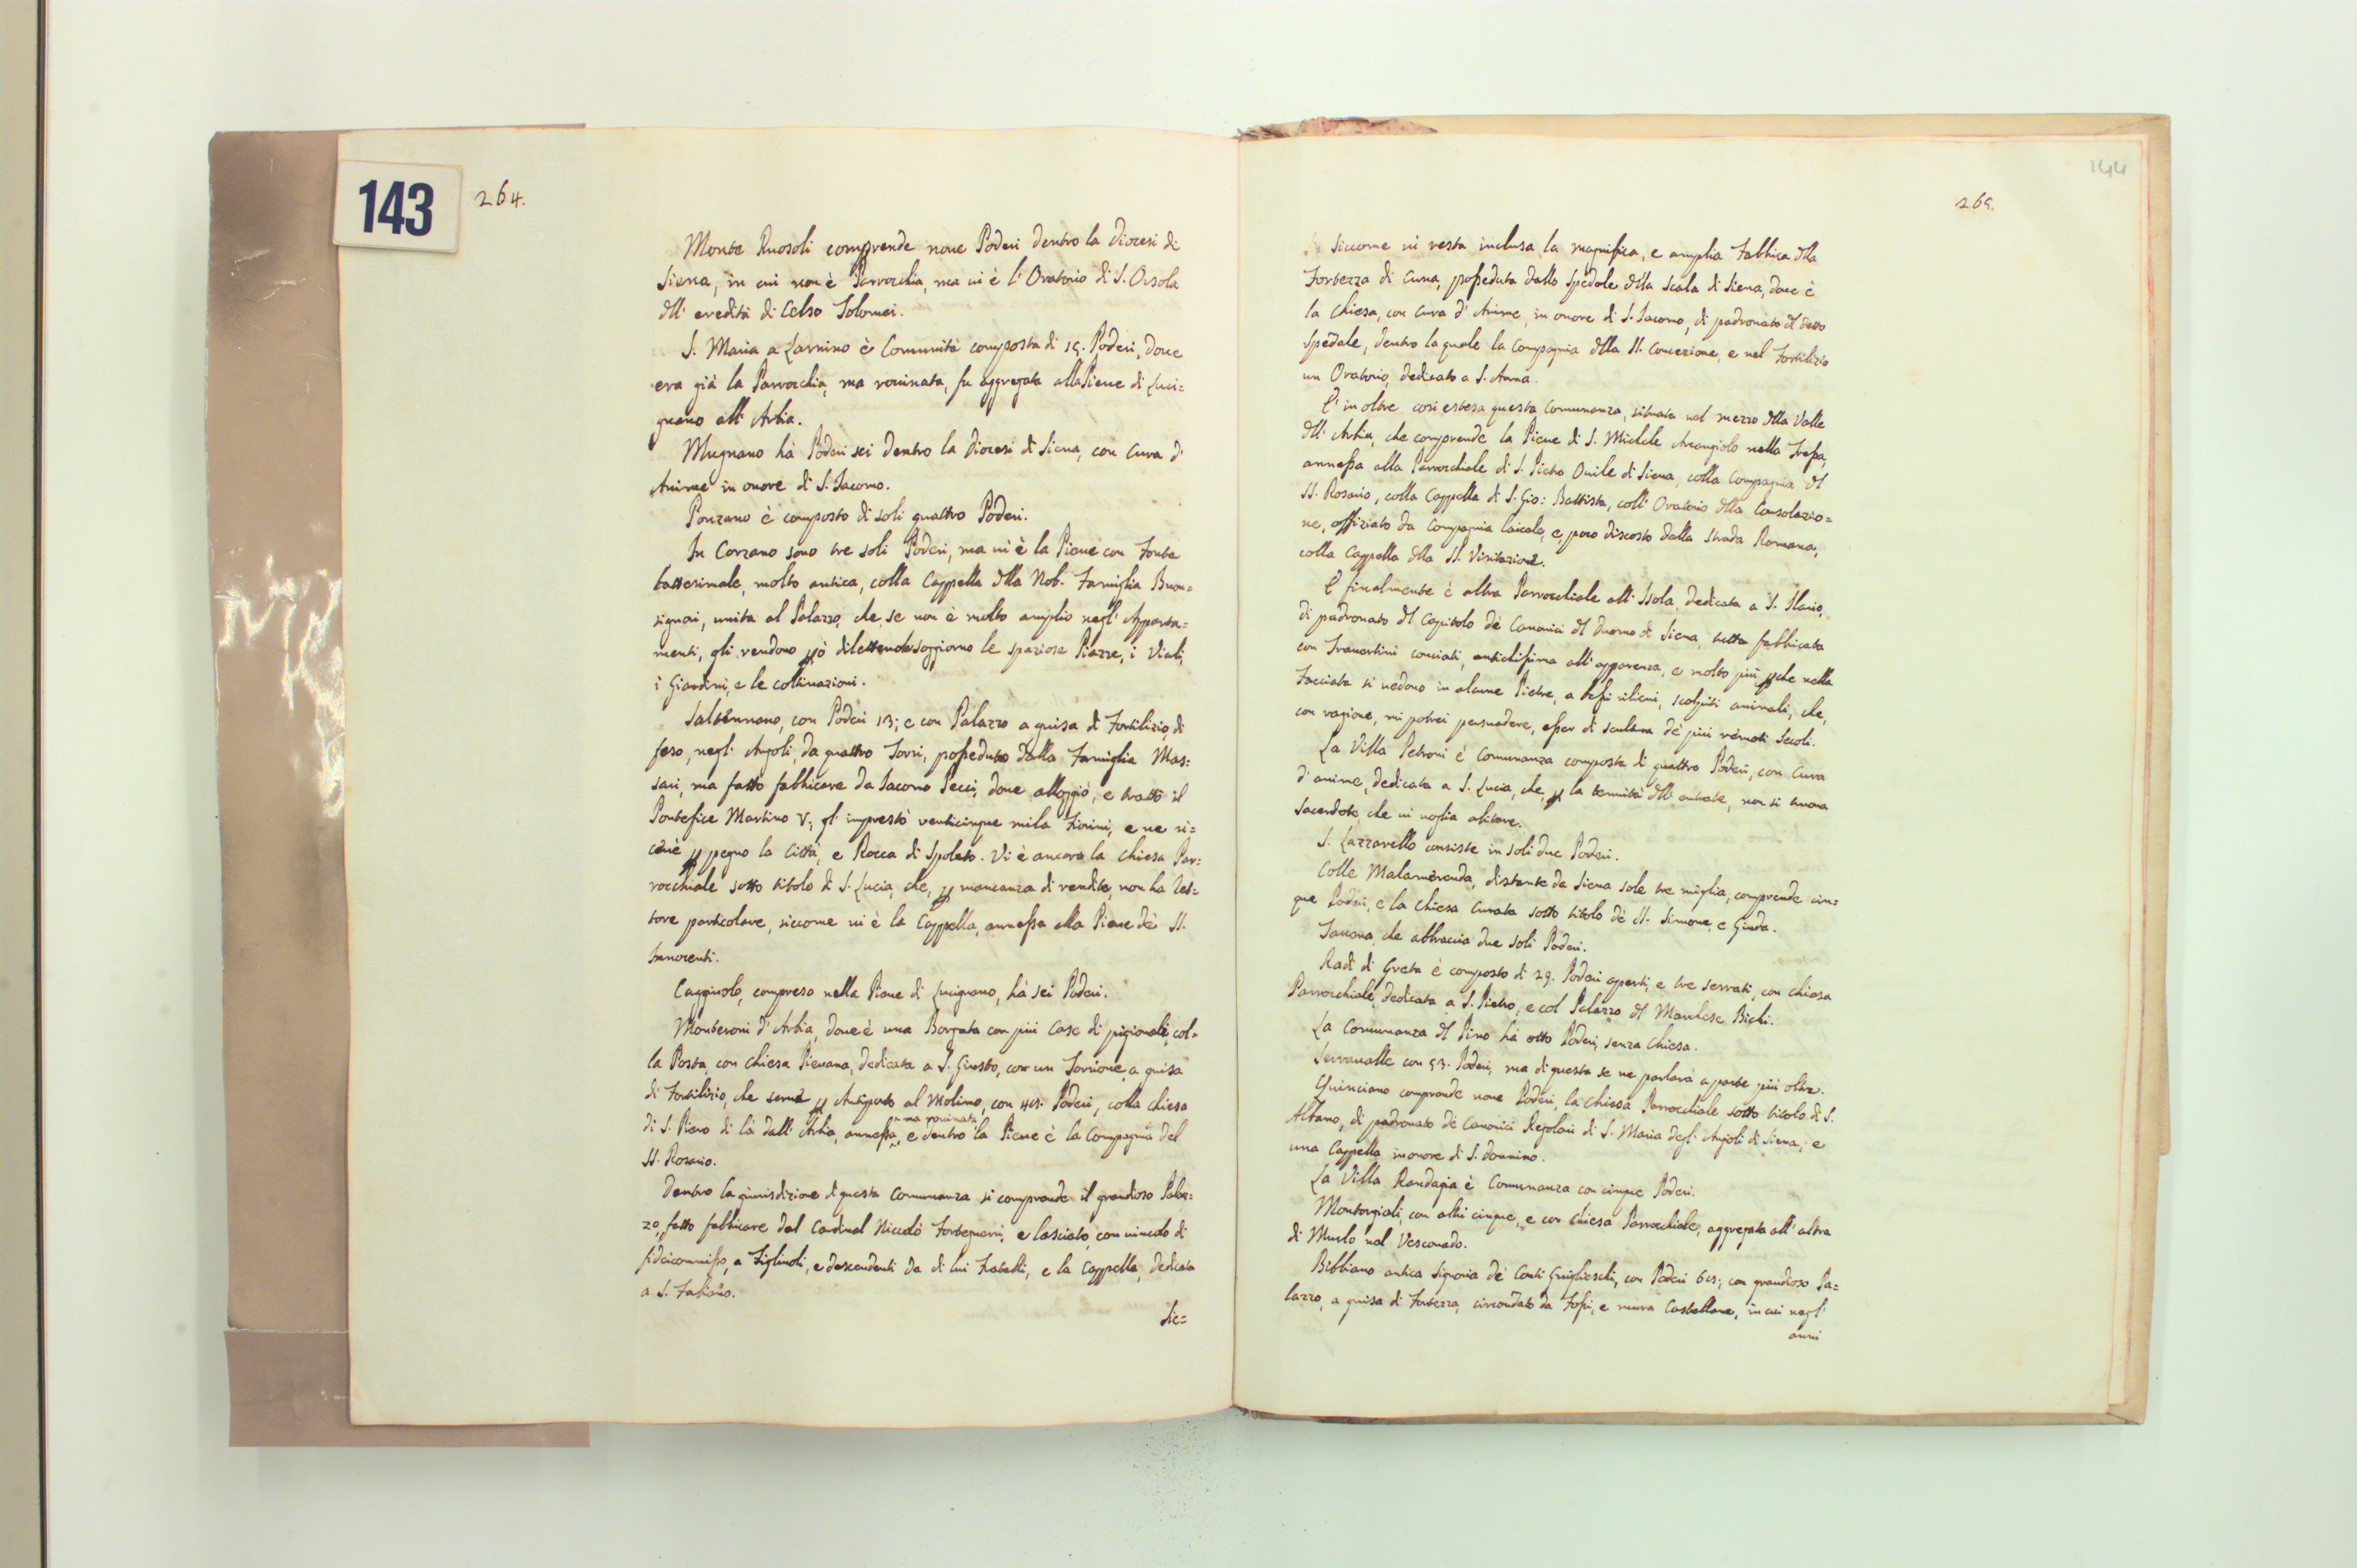 143
264.
Monte Ruosoli comprende noue Poderi dentro la Diocesi di
Siena, in cui non è Parrocchia, ma ui è l' Oratorio di S. Orsola
dll' eredità di Celso Tolomei.
S. Maria a Larnino è Comunità composta di 15. Poderi, doue
era già la Parrocchia, ma rouinata, fu aggregata alla Pieue di Luci=
gnano all' Arbia.
Mugnano hà Poderi sei dentro la Diocesi di Siena, con Cura d'
Anime in onore di S. Iacomo.
Ponzano è composto di soli quattro Poderi.
In Corzano sono tre soli Poderi, ma ui è la Pieue con Fonte
battesimale, molto antica, colla Cappella dlla Nob. Famiglia Buon=
signori, unita al Palazzo, che, se non è molto amplio negl' Apparta=
menti, gli rendono pò dilettenole soggiorno le spaziose Piazze, i Viali,
i Giardini, e le coltiuazioni.
Salteннano, con Poderi 13; e con Palazzo a guisa di Fortilizio, di
feso, negl' Angoli, da quattro Torri, posseduto dalla Famiglia Mas=
sari, ma fatto fabbricare da Iacomo Pecci, doue alloggiò, e trattò il
Pontefice Martino V; gl' imprestò venticinque mila Fiorini, e ne ri=
ceuè p pegno la Città, e Rocca di Spoleto. Vi è ancora la Chiesa Par=
rocchiale sotto titolo di S. Lucia, che, p mancanza di rendite, non ha Ret=
tore particolare, siccome ui è la Cappella, annessa alla Pieue dè SS.
Innocenti.
Caggiuolo, compreso nella Pieue di Lucignano, hà sei Poderi.
Monteroni d' Arbia, doue è una Borgata con più Case di pigionali, col=
la Posta, con Chiesa Pieuana, dedicata a S. Giusto, con un Torrione, a guisa
di Fortilizio, che serue p Antiporto al Molino, con 45. Poderi, colla Chiesa
di S. Piero di là dall' Arbia, annessa, ma rouinata, e dentro la Pieue è la Compagnia del
SS. Rosario.
Dentro la giurisdizione di questa Comunanza si comprende il grandioso Palaz=
zo, fatto fabbricare dal Cardinal Niccolò Forteguerri, e lasciato, con uincolo di
fideicommisso, a Figliuoli, e descendenti da di lui Fratelli, e la Cappella, dedicata
a S. Fabiano.
Sic=
144
265.
Siccome ui resta inclusa la magnifica, e amplia Fabbrica dlla
Fortezza di Cuna, posseduta dallo Spedale dlla Scala di Siena, doue è
la Chiesa, con Cura d' Anime, in onore di S. Iacomo, di padronato dl detto
Spedale, dentro la quale la Compagnia dlla SS. Concezione, e nel Fortilizio
un Oratorio, dedicato a S. Anna.
E' in oltre così estesa questa Comunanza, situata nel mezzo dlla Valle
dll' Arbia, che comprende la Pieue di S. Michele Arcangiolo nella Tressa,
annessa alla Parrocchiale di S. Pietro Ouile di Siena, colla Compagnia dl
SS. Rosario, colla Cappella di S. Gio: Battista, coll' Oratorio dlla Consolazio=
ne, offiziato da Compagnia laicale, e, poco discosto dalla Strada Romana,
colla Cappella dlla SS. Visitazione.
E finalmente è altra Parrocchiale all' Isola, dedicata a S. Ilario,
di padronato dl Capitolo dè Canonici dl Duomo di Siena, tutta fabbricata
con Trauertini conciati, antichissima all' apparenza, e molto più pche nella
Facciata si uedono in alcune Pietre, a bassi rilieui, scolpiti animali, che,
con ragione, mi potrei persuadere, esser di scultura dè più remoti Secoli.
La Villa Petroni è Comunanza composta di quattro Poderi, con Cura
d' anime, dedicata a S. Lucia, che, p la tenuità dll' entrate, non si truoua
Sacerdote, che ui uoglia abitare.
S. Lazzarello consiste in soli due Poderi.
Colle Malamerenda, distante da Siena sole tre miglia, comprende cin=
que Poderi, e la Chiesa Curata sotto titolo dè SS. Simone, e Giuda.
Iauona, che abbraccia due soli Poderi.
Radi di Greta è composto di 29. Poderi aperti, e tre serrati, con Chiesa
Parrocchiale, dedicata a S. Pietro, e col Palazzo dl Marchese Bichi.
La Comunanza dl Pino hà otto Poderi, senza Chiesa.
Serraualle con 53. Poderi, ma di questa se ne parlarà a parte più oltre.
Quinciano comprende noue Poderi, la Chiesa Parrocchiale sotto titolo di S.
Albano, di padronato dè Canonici Regolari di S. Maria degl' Angioli di Siena, e
una Cappella in onore di S. Donnino.
La Villa Randagia è Comunanza con cinque Poderi.
Montorgiali, con altri cinque, e con Chiesa Parrocchiale, aggregata all' altra
di Murlo nel Vescouado.
Bibbiano antica Signoria dè Conti Guiglieschi, con Poderi 65; con grandioso Pa=
lazzo, a guisa di Fortezza, circondato da Fossi, e mura Castellane, in cui negl'
anni